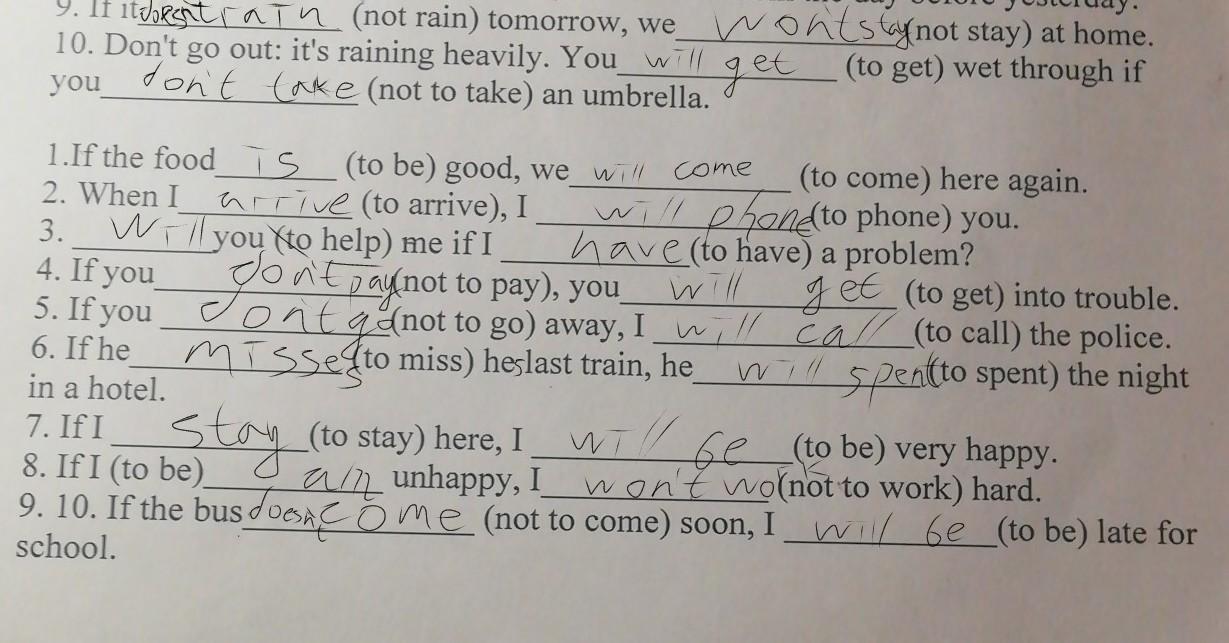 9. If it doesnt rain (not rain) tomorrow, we wont stay (not stay) at home.
10. Don't go out: it's raining heavily. You will get (to get) wet through if
you don't take (not to take) an umbrella.
1.If the food is (to be) good, we will come (to come) here again.
2. When I arrive (to arrive), I will phone (to phone) you.
3. Will you (to help) me if I have (to have) a problem?
4. If you don't pay (not to pay), you will get (to get) into trouble.
5. If you dont go (not to go) away, I will call (to call) the police.
6. If he misses (to miss) heslast train, he will spent (to spent) the night
in a hotel.
7. If I stay (to stay) here, I will be (to be) very happy.
8. If I (to be) am unhappy, I won't wo (not to work) hard.
9. 10. If the bus doesn't come (not to come) soon, I will be (to be) late for
school.